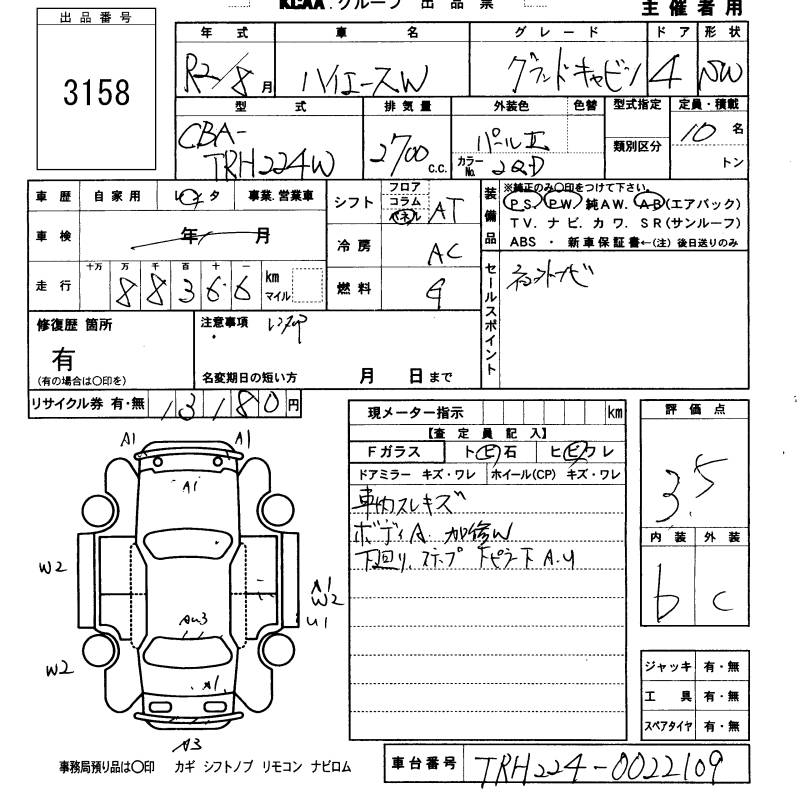 KCAA.グループ 出品票 主催者用
出品番号
3158
年式 車名 グレード ドア 形状
R2/8月 ハイエースW グランドキャビン 4 NW
型式 排気量 外装色 色替 型式指定 定員・積載
CBA-
TRH224W
2700 c.c.
パールII
カラーNo. 2QD
類別区分
10名
トン
車歴 自家用 レンタ 事業.営業車
車検 年 月
走行 十万 万 千 百 十 一
88366 km
マイル
シフト フロア
コラム
パネル
AT
冷房 AC
燃料 G
装備品
※純正のみ○印をつけて下さい。
PS. PW. 純AW. AB(エアバック)
TV. ナビ. カワ. SR(サンルーフ)
ABS ・ 新車保証書←(注) 後日送りのみ
セールスポイント
修復歴 箇所
有
(有の場合は○印を)
注意事項 レンタ印
名変期日の短い方 月 日まで
リサイクル券 有・無 13180円
現メーター指示 km
【査定員記入】
Fガラス ト ビ 石 ヒ ビ ワレ
ドアミラー キズ・ワレ ホイール(CP) キズ・ワレ
車内スレキズ
ボディA. 加修W
下廻り. ステップ 下ピラー下 A.U
評価点
3.5
内装 外装
b c
A1 A1
A1
W2
A1
W2
U1
AU3
W2
A1
A3
ジャッキ 有・無
工具 有・無
スペアタイヤ 有・無
事務局預り品は○印 カギ シフトノブ リモコン ナビロム
車台番号 TRH224-0022109